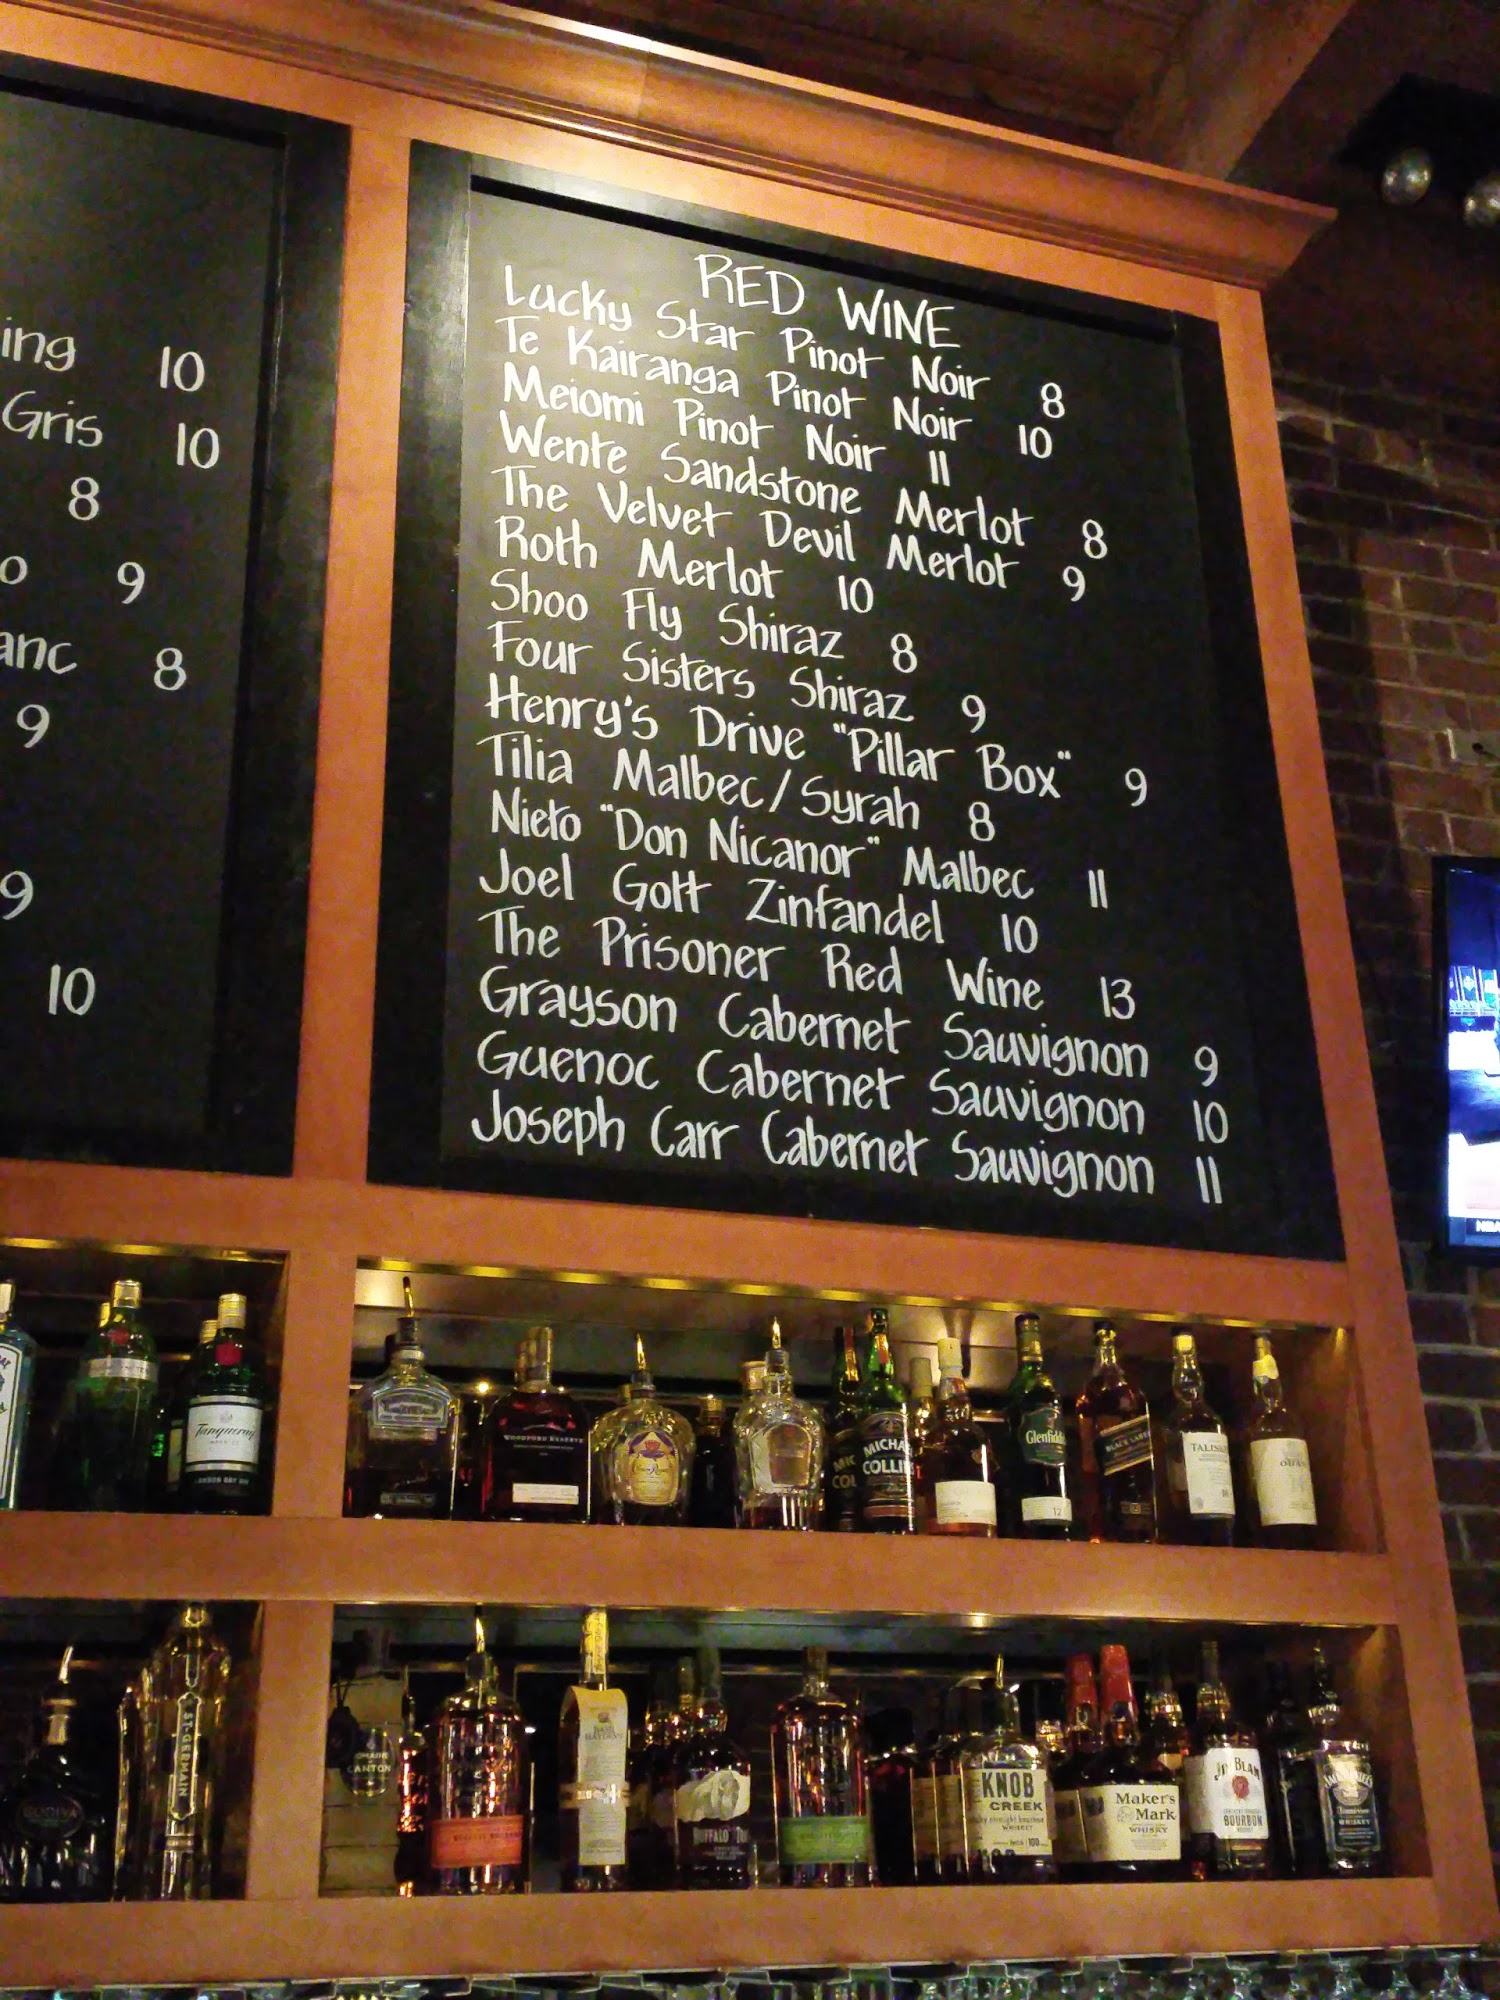 ing 10
Gris 10
8
o 9
anc 8
9
9
10
RED WINE
Lucky Star Pinot Noir 8
Te Kairanga Pinot Noir 10
Meiomi Pinot Noir 11
Wente Sandstone Merlot 8
The Velvet Devil Merlot 9
Roth Merlot 10
Shoo Fly Shiraz 8
Four Sisters Shiraz 9
Henry's Drive "Pillar Box" 9
Tilia Malbec/Syrah 8
Nieto "Don Nicanor" Malbec 11
Joel Gott Zinfandel 10
The Prisoner Red Wine 13
Grayson Cabernet Sauvignon 9
Guenoc Cabernet Sauvignon 10
Joseph Carr Cabernet Sauvignon 11
Tanqueray
LONDON DRY GIN
WOODFORD RESERVE
Crown Royal
MICHA
COLLI
Glenfiddi
12
BLACK LABEL
TALISK
OBAN
ST-GERMAIN
GODIVA
CANTON
BASIL
HAYDEN'S
BUFFALO
KNOB
CREEK
WHISKEY
100
Maker's
Mark
WHISKY
JIM BEAM
BOURBON
WHISKEY
NBA